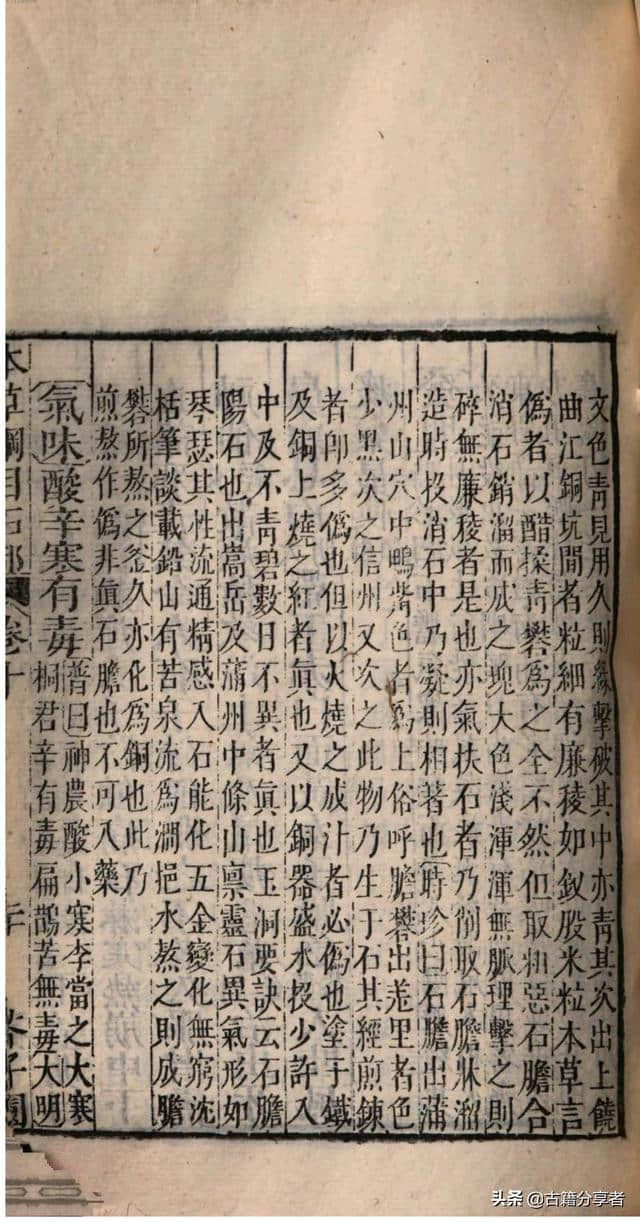 文色靑見用久則綠擊破其中亦靑其次出上饒
曲江銅坑間者粒細有廉稜如釵股米粒本草言
僞者以醋揉靑礬爲之全不然但取粗惡石膽合
消石銷溜而成之塊大色淺渾渾無脈理擊之則
碎無廉稜者是也亦氣扶石者乃削取石膽牀溜
造時投消石中乃凝則相著也時珍曰石膽出蒲
州山穴中鴨觜色者爲上俗呼膽礬出羗里者色
少黑次之信州又次之此物乃生于石其經煎鍊
者卽多僞也但以火燒之成汁者必僞也塗于鐵
及銅上燒之紅者眞也又以銅器盛水投少許入
中及不靑碧數日不異者眞也玉洞要訣云石膽
陽石也出嵩岳及蒲州中條山禀靈石異氣形如
琴瑟其性流通精感入石能化五金變化無窮沈
栝筆談載鉛山有苦泉流爲澗挹水熬之則成膽
礬所熬之釜久亦化爲銅也此乃
煎熬作僞非眞石膽也不可入藥
氣味酸辛寒有毒普曰神農酸小寒李當之大寒
桐君辛有毒扁鵲苦無毒大明
本草綱目石部 卷十 芥子園
头条 @古籍分享者